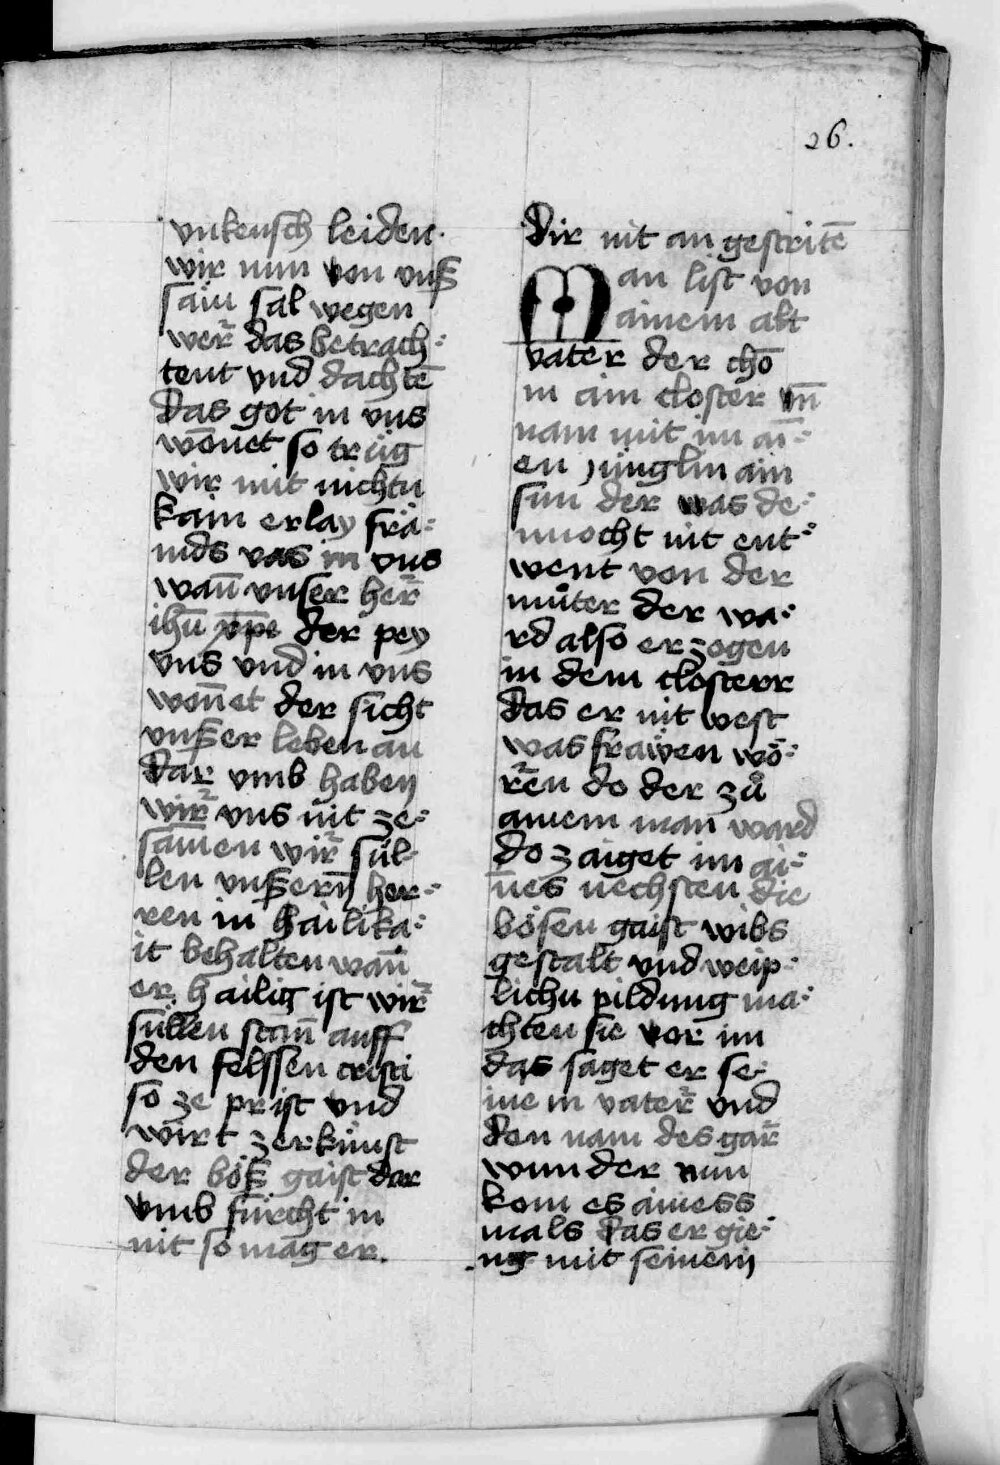 26.
vnkeusch leiden.
wir nun von vnß
sain sal wegen
wer̄ das betrach⸗
tent vnd dachtē
Das got in vns
wōnet so trüg
wir mit nichtu
kain erlay frä⸗
mds vas in vns
wan̄ vnser her̄
ihū xp̄e der pey
vns vnd in vns
won̄et der sicht
vnßer leben an
Dar vmb haben
wir̄ vns nit ze⸗
samen wir̄ sül⸗
len vnßern̄ her⸗
ren in hailika⸗
it behalten wan̄
er hailig ist wir̄
süllen stan̄ auff
den felssen cristi
so ze prist vnd
wirt zerkünst
der böß gaist dar
vmb fürcht in
nit so mag er.
Dir nit an gestritē
Man list von
ainem alt
vater der chō
in ain closter vn̄
nam mit im ai⸗
en jünglin ain
sun der was de⸗
nnocht nit ent⸗
went von der
můter der wa⸗
rd also er zogen
in dem closterr
Das er nit west
was frawen wö⸗
ren̄ do der zů
ainem man ward
do zaiget im ai⸗
nes nechsten die
bösen gaist wibs
gestalt vnd weip⸗
lichu pildung ma⸗
chten sie vor im
das saget er se⸗
inem vater̄ vnd
den nam des gar̄
wunder nun
kom es ainess
mals das er gie⸗
ng mit seinem